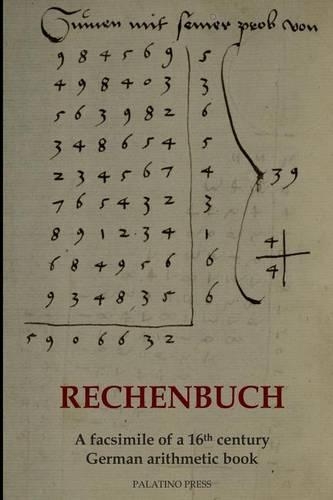 Sūmen mit seiner prob von
9 8 4 5 6 9 5
4 9 8 4 0 3 3
5 6 3 9 8 2 6
3 4 8 6 5 4 5
2 3 4 5 6 7 4 39
7 6 5 4 3 2 3
8 9 1 2 3 4 1 4
6 8 4 9 5 6 6 4
9 3 4 8 3 5 6
5 9 0 6 6 3 2
RECHENBUCH
A facsimile of a 16th century
German arithmetic book
PALATINO PRESS